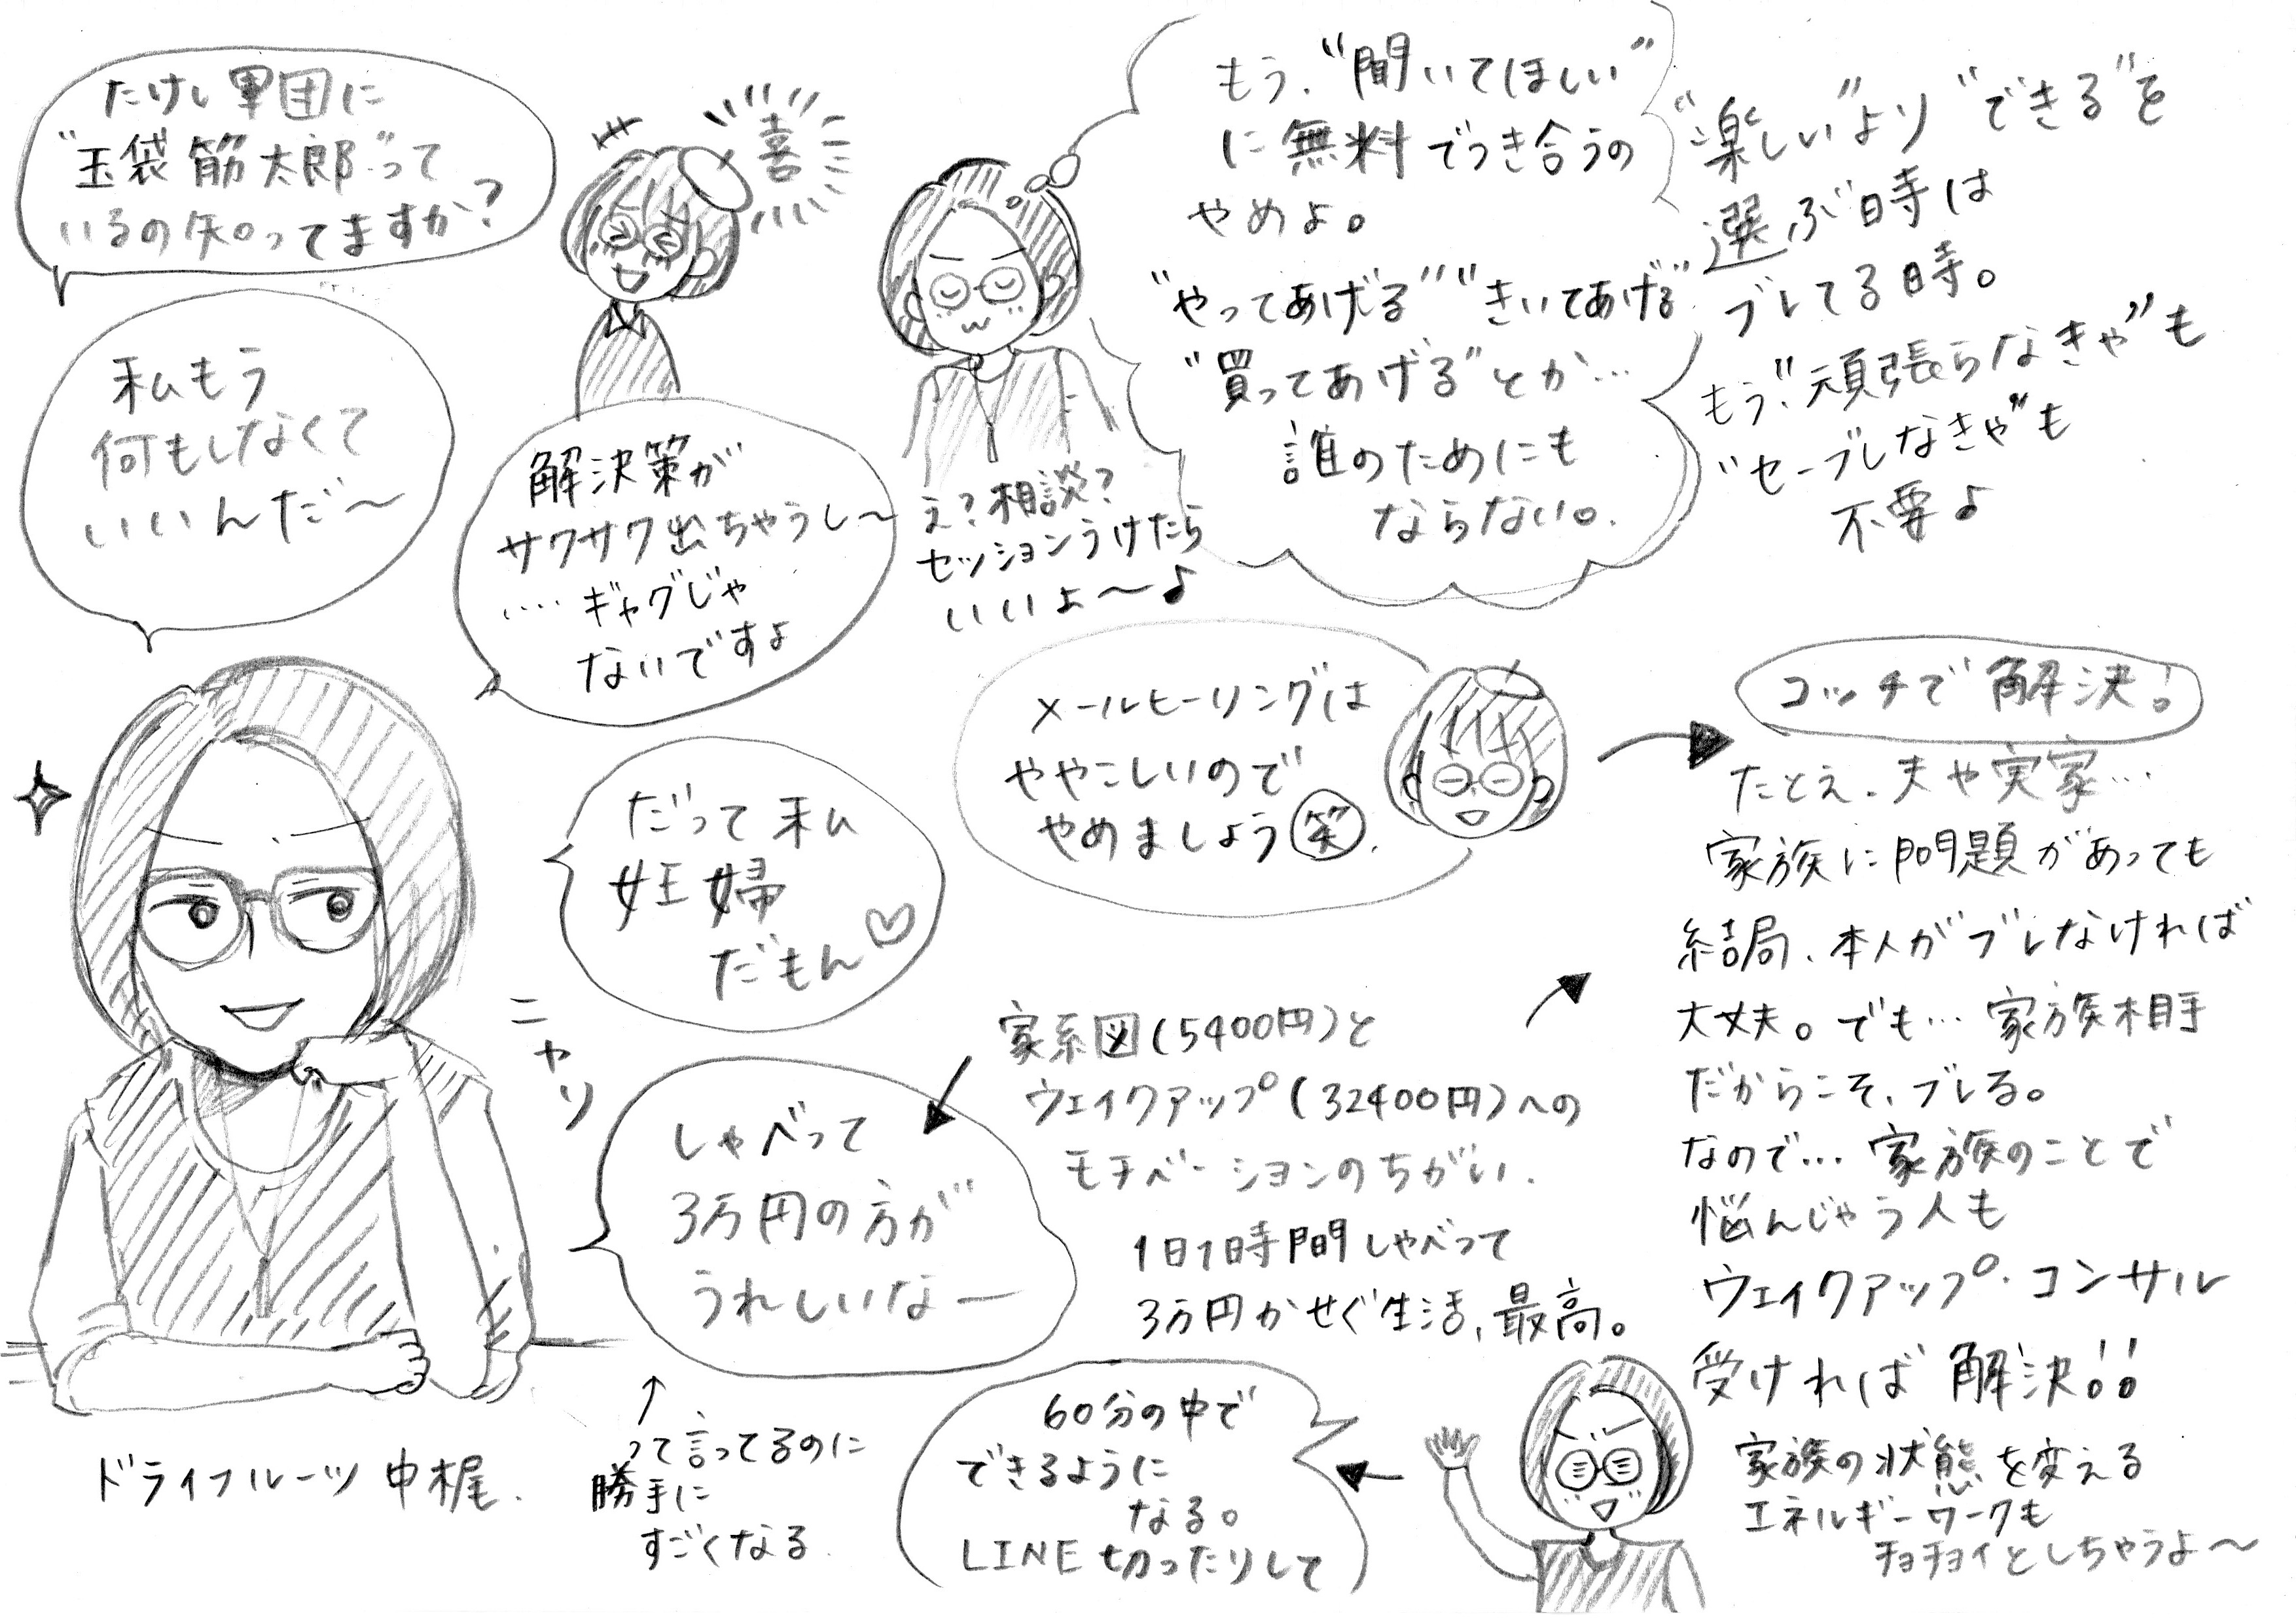 たけし軍団に
"玉袋筋太郎"って
いるの知ってますか?
喜
もう、"聞いてほしい"
に無料でつき合うの
やめよ。
"やってあげる""きいてあげる"
"買ってあげる"とか…
誰のためにも
ならない。
"楽しい"より"できる"を
選ぶ時は
ブレてる時。
もう"頑張らなきゃ"も
"セーブしなきゃ"も
不要♪
私もう
何もしなくて
いいんだ〜
解決策が
サワサワ出ちゃうし〜
‥‥ギャグじゃ
ないですよ
え?相談?
セッションうけたら
いいよ〜♪
だって私
妊婦
だもん♡
メールヒーリングは
ややこしいので
やめましょう 笑.
コッチで解決!
たとえ、夫や実家…
家族に問題があっても
結局、本人がブレなければ
大丈夫。でも…家族相手
だからこそ、ブレる。
なので…家族のことで
悩んじゃう人も
ウェイクアップ・コンサル
受ければ解決!!
家族の状態を変える
エネルギーワークも
チョチョイとしちゃうよ〜
ニヤリ
家系図(5400円)と
ウェイクアップ(32400円)への
モチベーションのちがい.
1日1時間しゃべって
3万円かせぐ生活、最高。
しゃべって
3万円の方が
うれしいなー
って言ってるのに
勝手に
すごくなる.
60分の中で
できるように
なる。
LINE切ったりして
ドライフルーツ中梶.